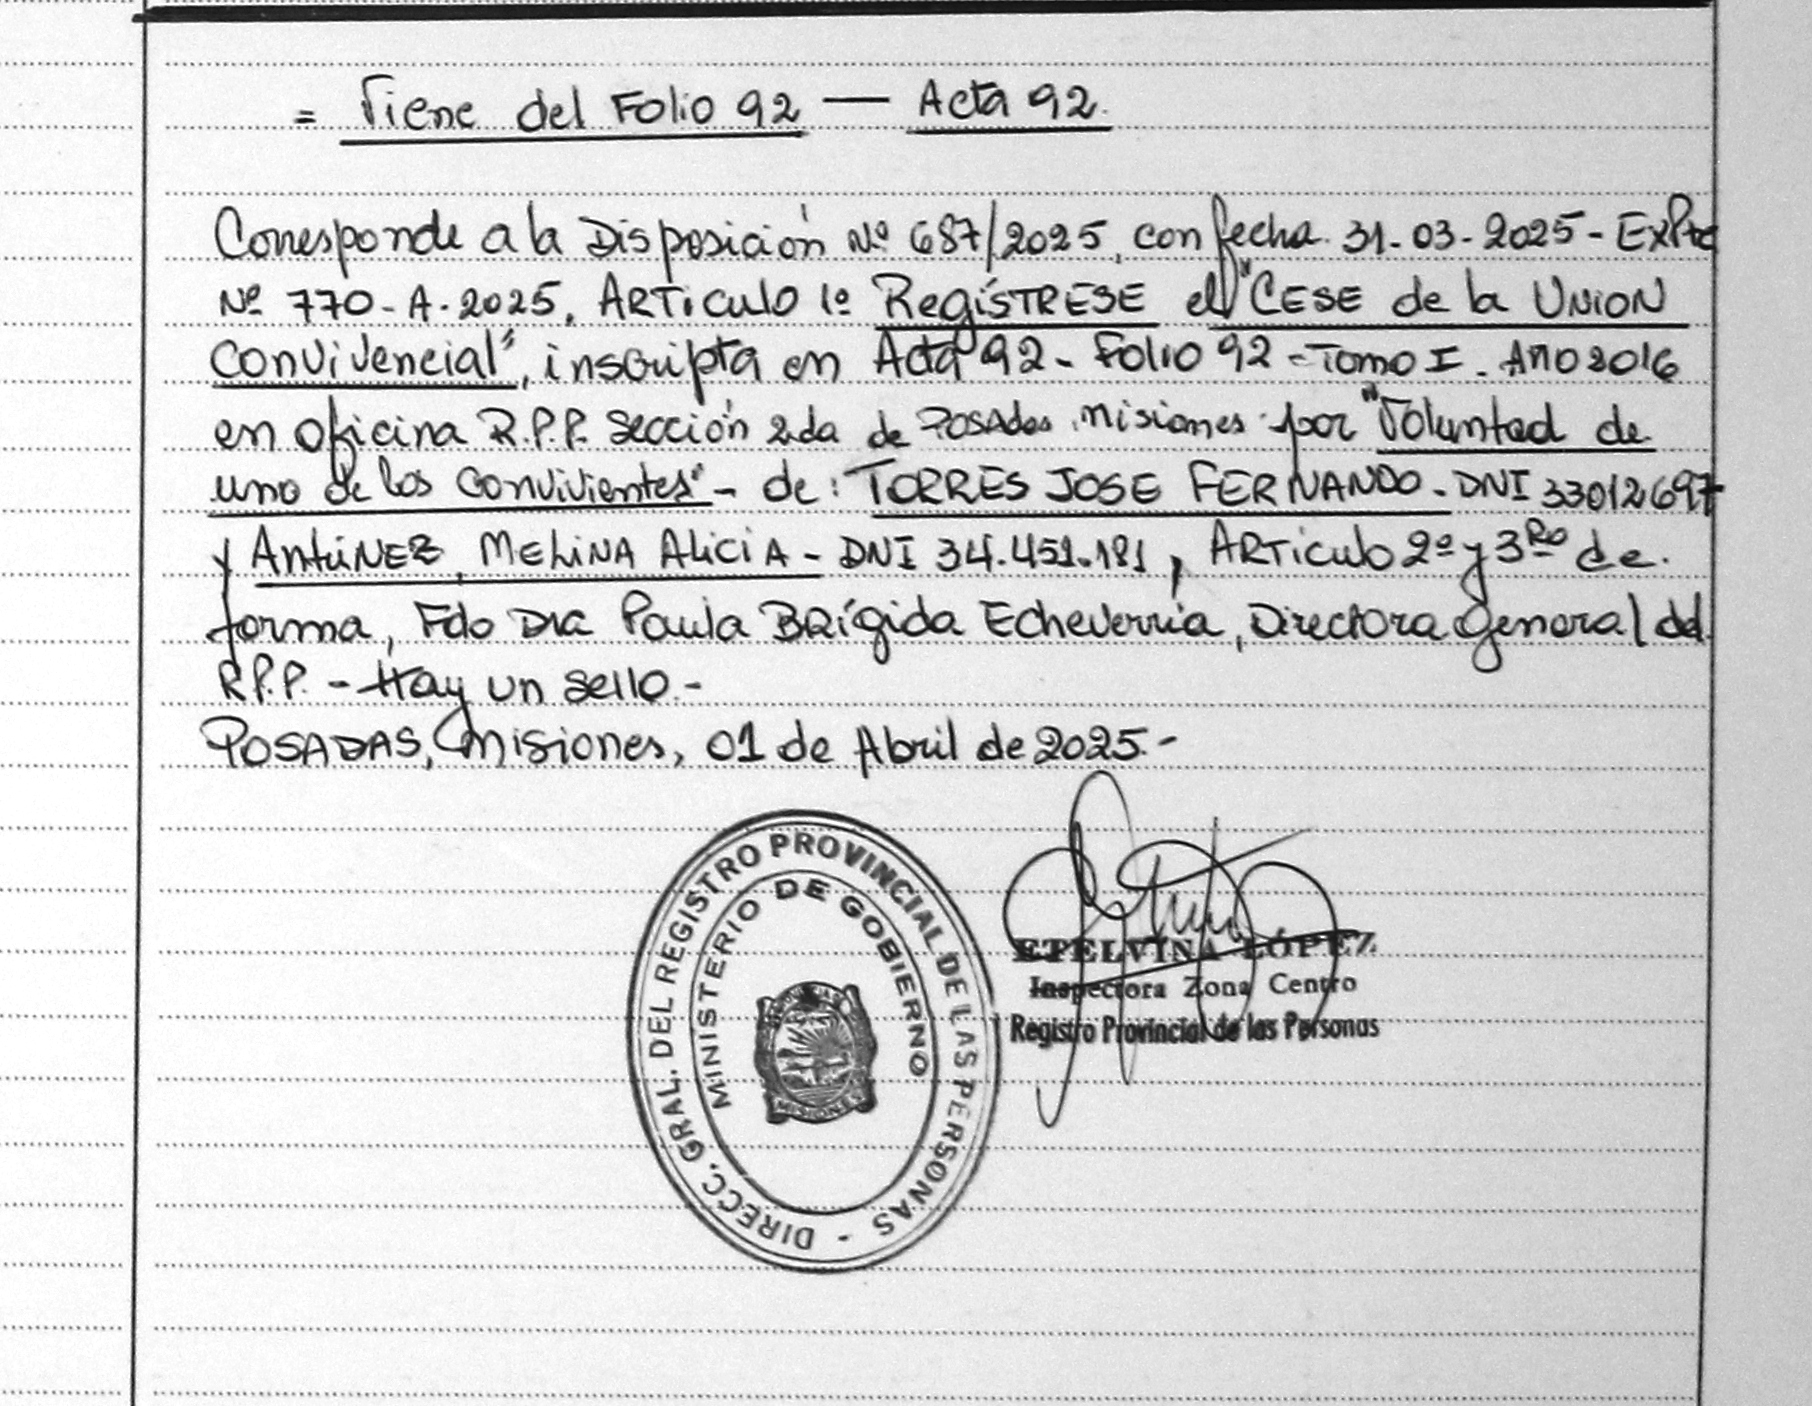 = Viene del Folio 92 — Acta 92.
Corresponde a la Disposición Nº 687/2025, con fecha 31-03-2025- ExPte
Nº 770-A-2025, ARTiculo 1º RegíSTRESE el "CESE de la UNION
Convivencial", inscripta en Acta 92- Folio 92 - Tomo I. Año 2016
en oficina R.P.P. Sección 2da de Posadas Misiones por "Voluntad de
uno de los convivientes" - de: TORRES JOSE FERNANDO. DNI 33012697
y AntúNEZ, MELINA AliciA - DNI 34.451.181, ARTiculo 2º y 3Ro de
forma, Fdo Dra Paula BRígida Echeverria, Directora General del
R.P.P. - Hay un sello.-
POSADAS, Misiones, 01 de Abril de 2025.-
DIRECC. GRAL. DEL REGISTRO PROVINCIAL DE LAS PERSONAS -
MINISTERIO DE GOBIERNO
MISIONES
ETELVINA LÓPEZ
Inspectora Zona Centro
Registro Provincial de las Personas